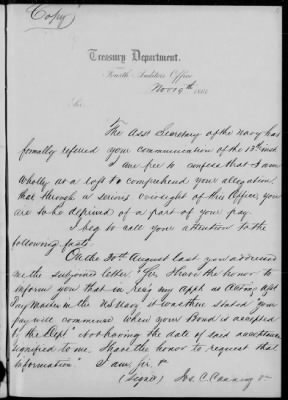 (Copy)
Treasury Department.
Fourth Auditors Office
Nov 19th 186
Sir
The Asst Secretary of the Navy has
formally referred your communication of the 15th inst
I am free to confess that I am
wholly at a loss to comprehend your allegation,
that through a serious oversight of this Office, you
are to be deprived of a part of your pay.
I beg to call your attention to the
following facts.
On the 20th August last you addressed
me the subjoined letter "Sir, I have the honor to
inform you that in being my appt as Acting Asst
Pay Master in the US Navy it was therein stated "your
pay will commence when your Bond is accepted
by the Dept" Not having the date of said acceptance
signified to me, I have the honor to request that
information" I am, sir &
(Signed) Jos. C. Canning &